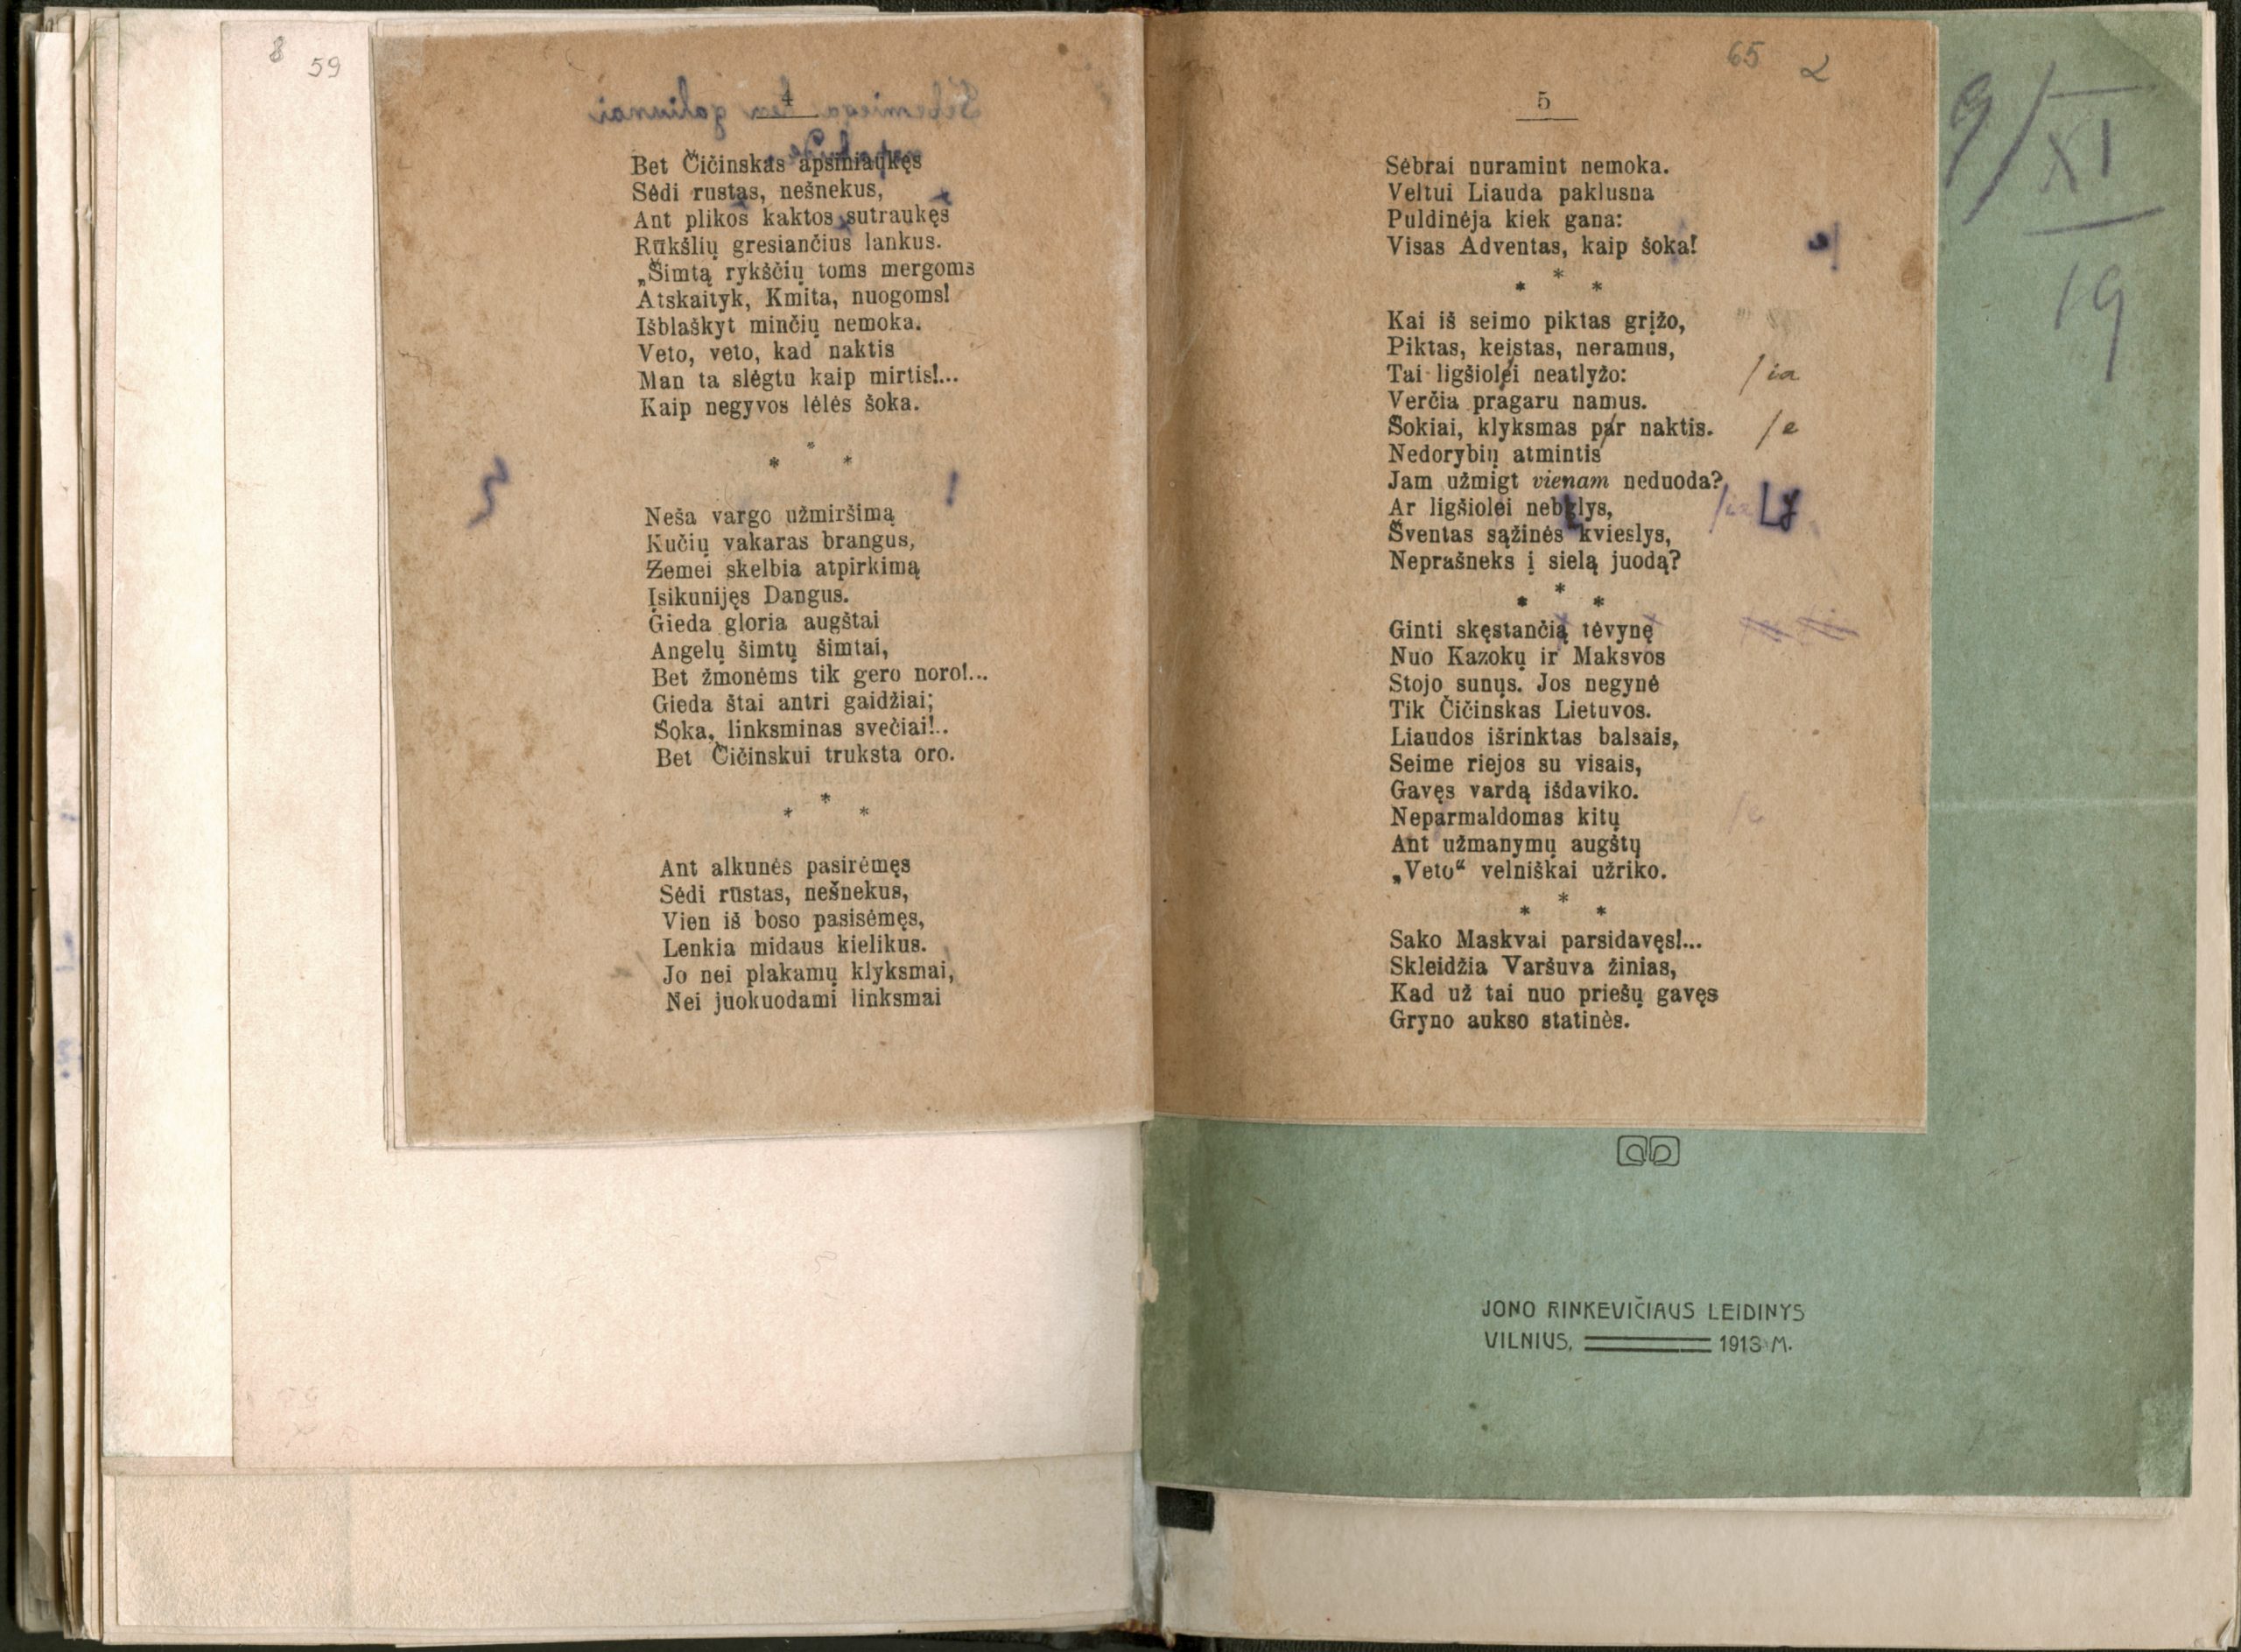 8 59
4
Bet Čičinskas apsiniaukęs
Sėdi rustas, nešnekus,
Ant plikos kaktos sutraukęs
Rūkšlių gresiančius lankus.
„Šimtą rykščių toms mergoms
Atskaityk, Kmita, nuogoms!
Išblaškyt minčių nemoka.
Veto, veto, kad naktis
Man ta slėgtu kaip mirtis!...
Kaip negyvos lėlės šoka.
* * *
Neša vargo užmiršimą
Kučių vakaras brangus,
Žemei skelbia atpirkimą
Įsikunijęs Dangus.
Gieda gloria augštai
Angelų šimtų šimtai,
Bet žmonėms tik gero noro!...
Gieda štai antri gaidžiai;
Šoka, linksminas svečiai!..
Bet Čičinskui truksta oro.
* * *
Ant alkunės pasirėmęs
Sėdi rūstas, nešnekus,
Vien iš boso pasisėmęs,
Lenkia midaus kielikus.
Jo nei plakamų klyksmai,
Nei juokuodami linksmai
65 2
5
Sėbrai nuramint nemoka.
Veltui Liauda paklusna
Puldinėja kiek gana:
Visas Adventas, kaip šoka!
/e
* * *
Kai iš seimo piktas grįžo,
Piktas, keįstas, neramus,
Tai ligšiolei neatlyžo: /ia
Verčia pragaru namus.
Šokiai, klyksmas par naktis. /e
Nedorybių atmintis
Jam užmigt vienam neduoda?
Ar ligšiolei nebylys,
Šventas sąžinės kvieslys,
Neprašneks į sielą juodą?
* * *
Ginti skęstančią tėvynę
Nuo Kazokų ir Maksvos
Stojo sunųs. Jos negynė
Tik Čičinskas Lietuvos.
Liaudos išrinktas balsais,
Seime riejos su visais,
Gavęs vardą išdaviko.
Neparmaldomas kitų
Ant užmanymų augštų
„Veto“ velniškai užriko.
* * *
Sako Maskvai parsidavęs!...
Skleidžia Varšuva žinias,
Kad už tai nuo priešų gavęs
Gryno aukso statinės.
9/XI
19
JONO RINKEVIČIAUS LEIDINYS
VILNIUS, 1913 M.